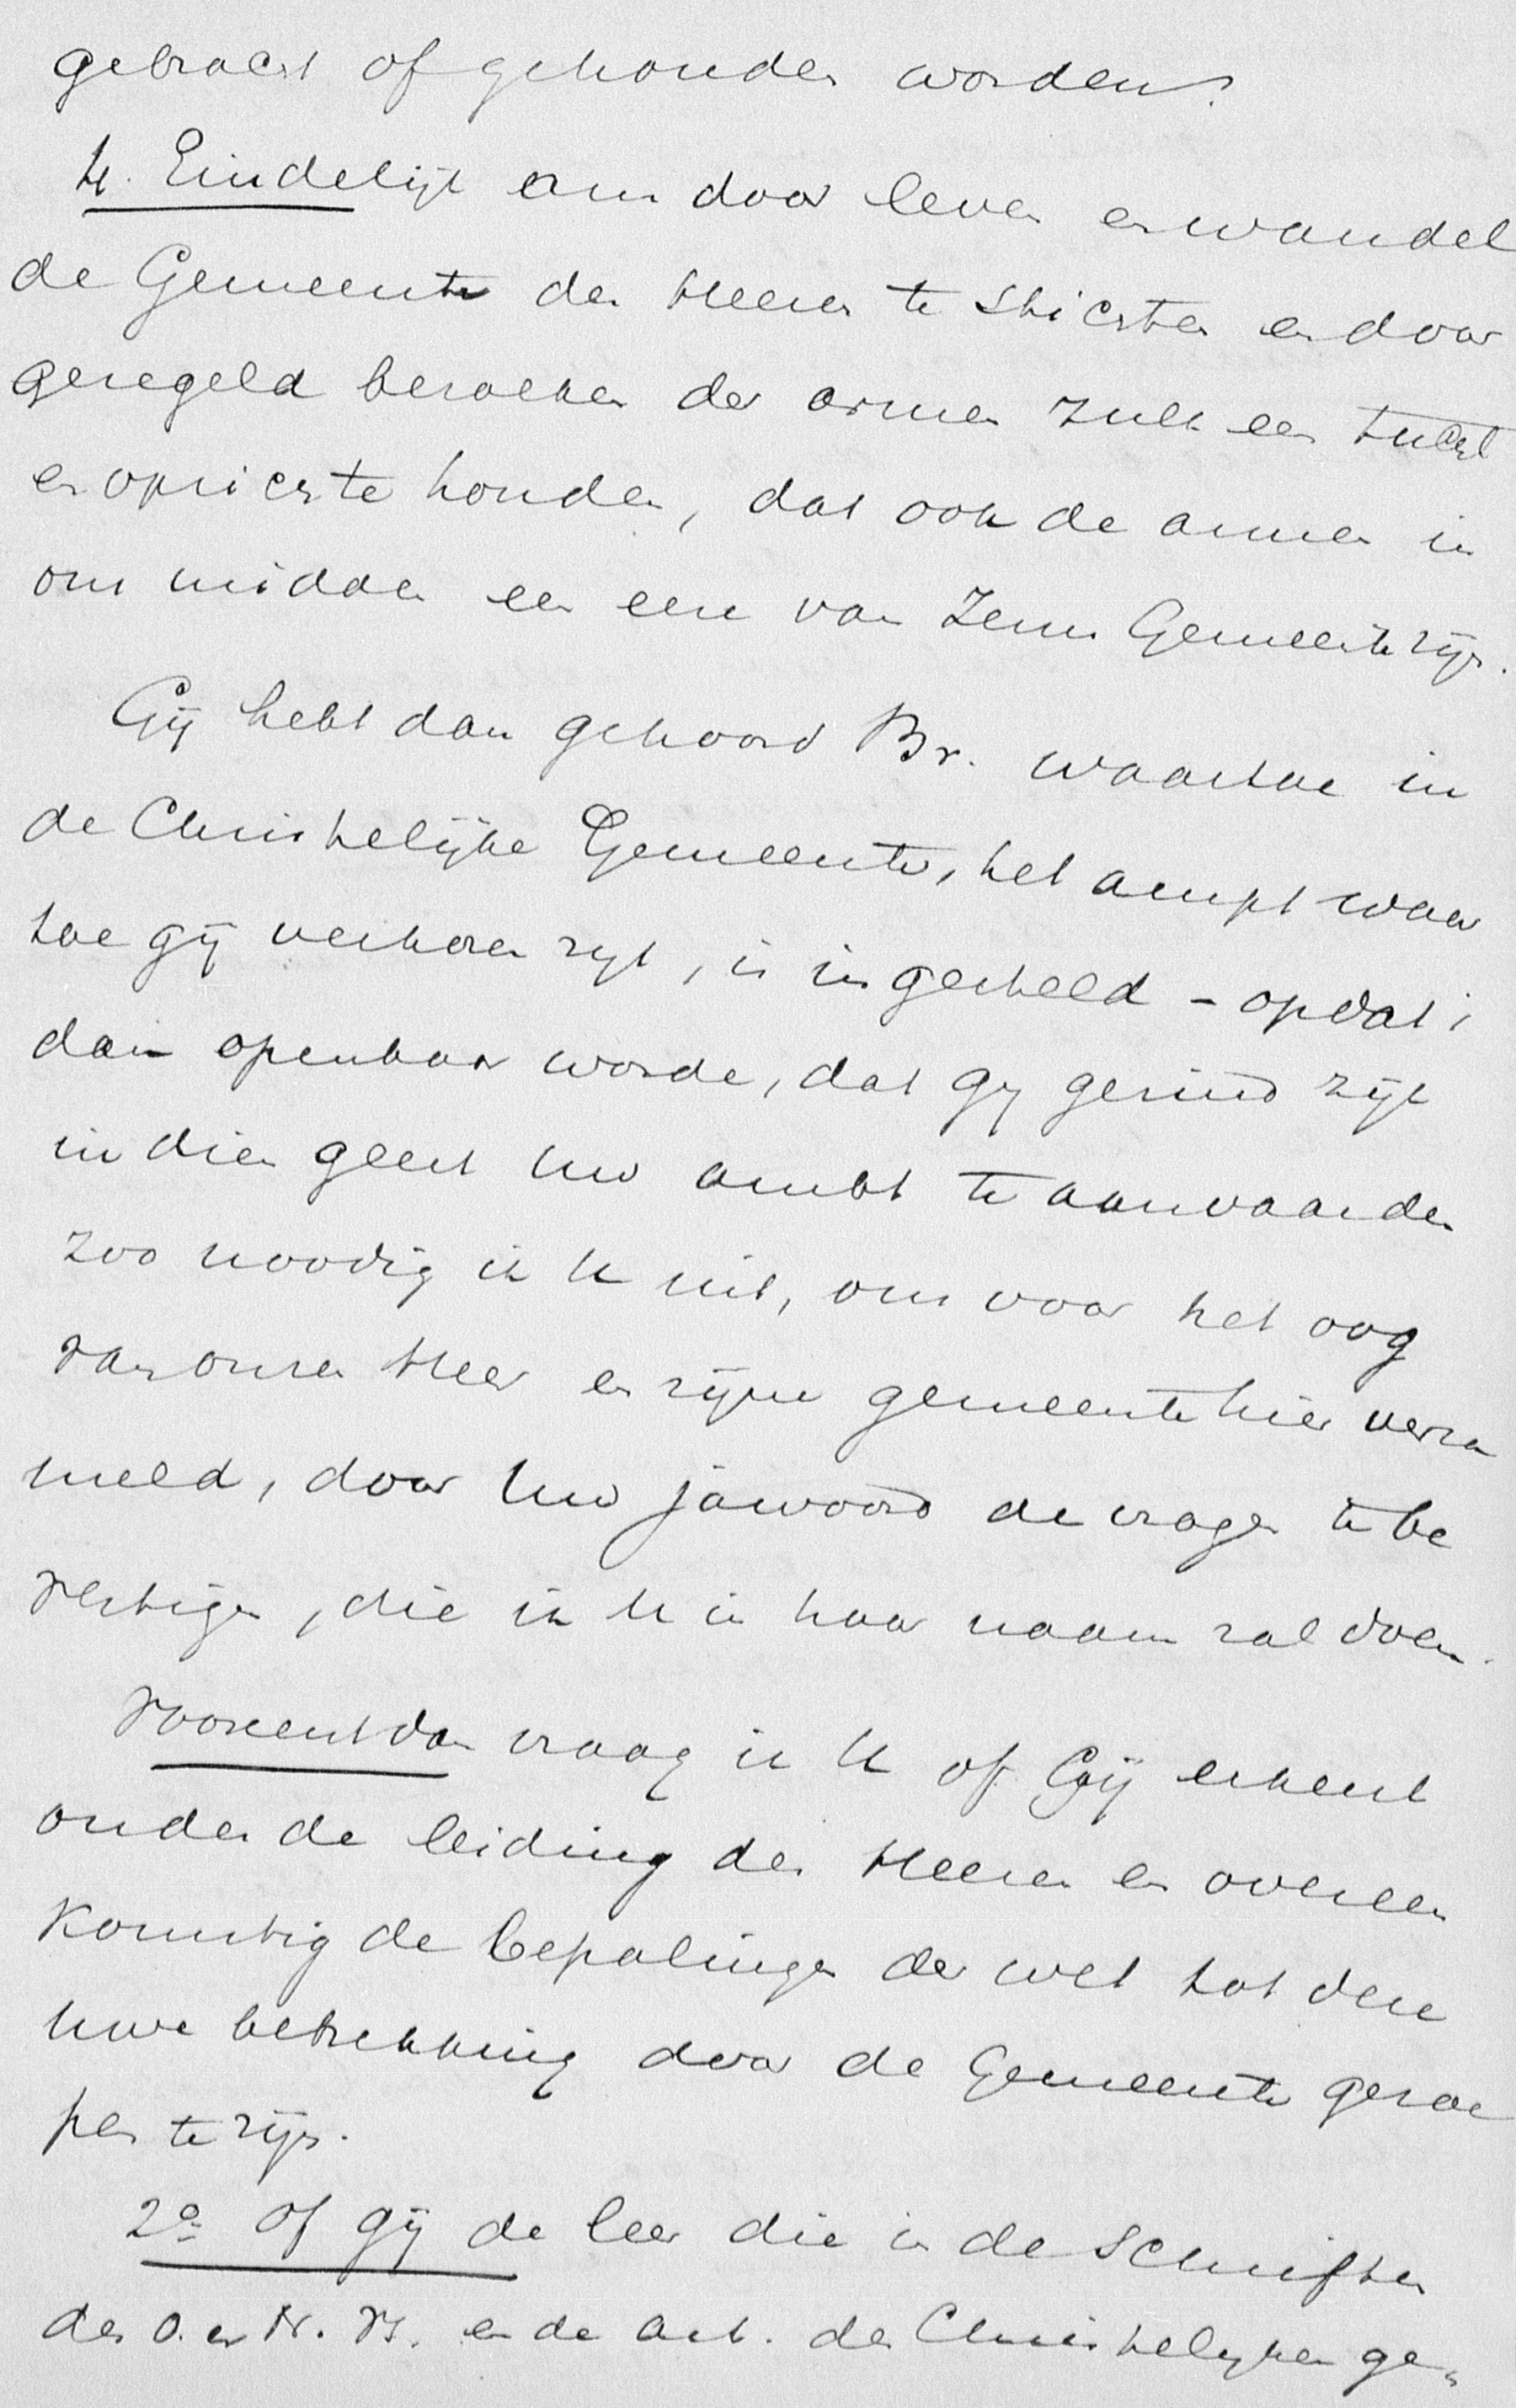 gebracht of gehouden worden.
4. Eindelijk om door leven en wandel
de Gemeente des Heeren te stichten en door
geregeld bezoeken der armen zulk een tucht
en opzicht te houden, dat ook de armen in
ons midden een eere van Zeine Gemeente zijn.
Gij hebt dan gehoord Br. waartoe in
de Christelijke Gemeente, het ampt waar
toe gij verkoren zijt, is ingesteld - opdat i
dan openbaar worde, dat gij gezind zijt
in dien geest Uw ambt te aanvaarden
zoo noodig ik U uit, om voor het oog
van onzen Heer en zijne gemeente hier verza
meld, door Uw jawoord de vragen te be
vestigen, die ik U in haar naam zal doen.
Vooreerst dan vraag ik U of Gij erkent
onder de leiding des Heeren en overeen
komstig de bepalingen der wet tot deze
Uwe betrekking door de Gemeente geroe
pen te zijn.
2e of gij de leer die in de schriften
des O. en N. V. en de art. des Christelijken ge-